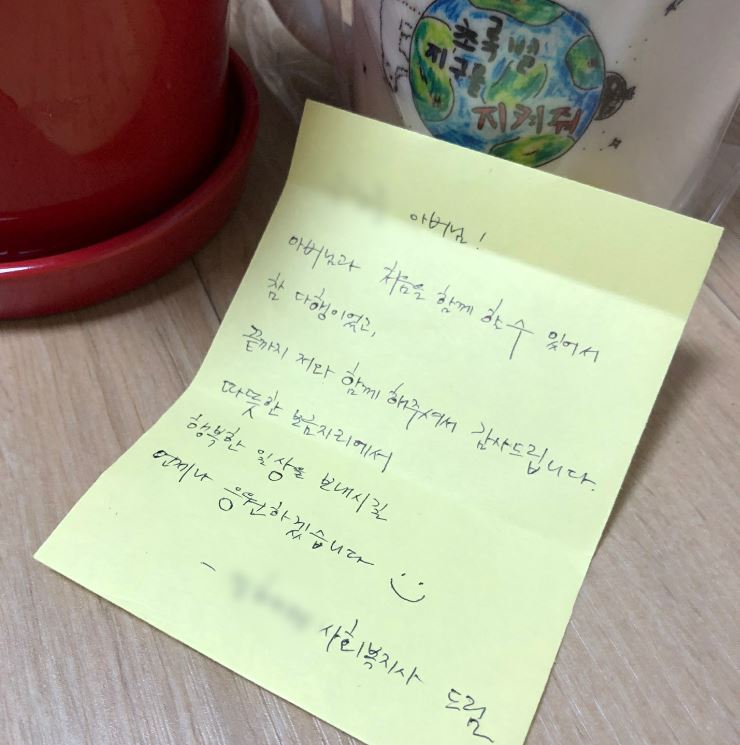 초록별
지구를
지켜줘
아버님!
아버님과 처음을 함께 할 수 있어서
참 다행이었고,
끝까지 저와 함께 해주셔서 감사드립니다.
따뜻한 보금자리에서
행복한 일상을 보내시길
언제나 응원하겠습니다
-
사회복지사 드림